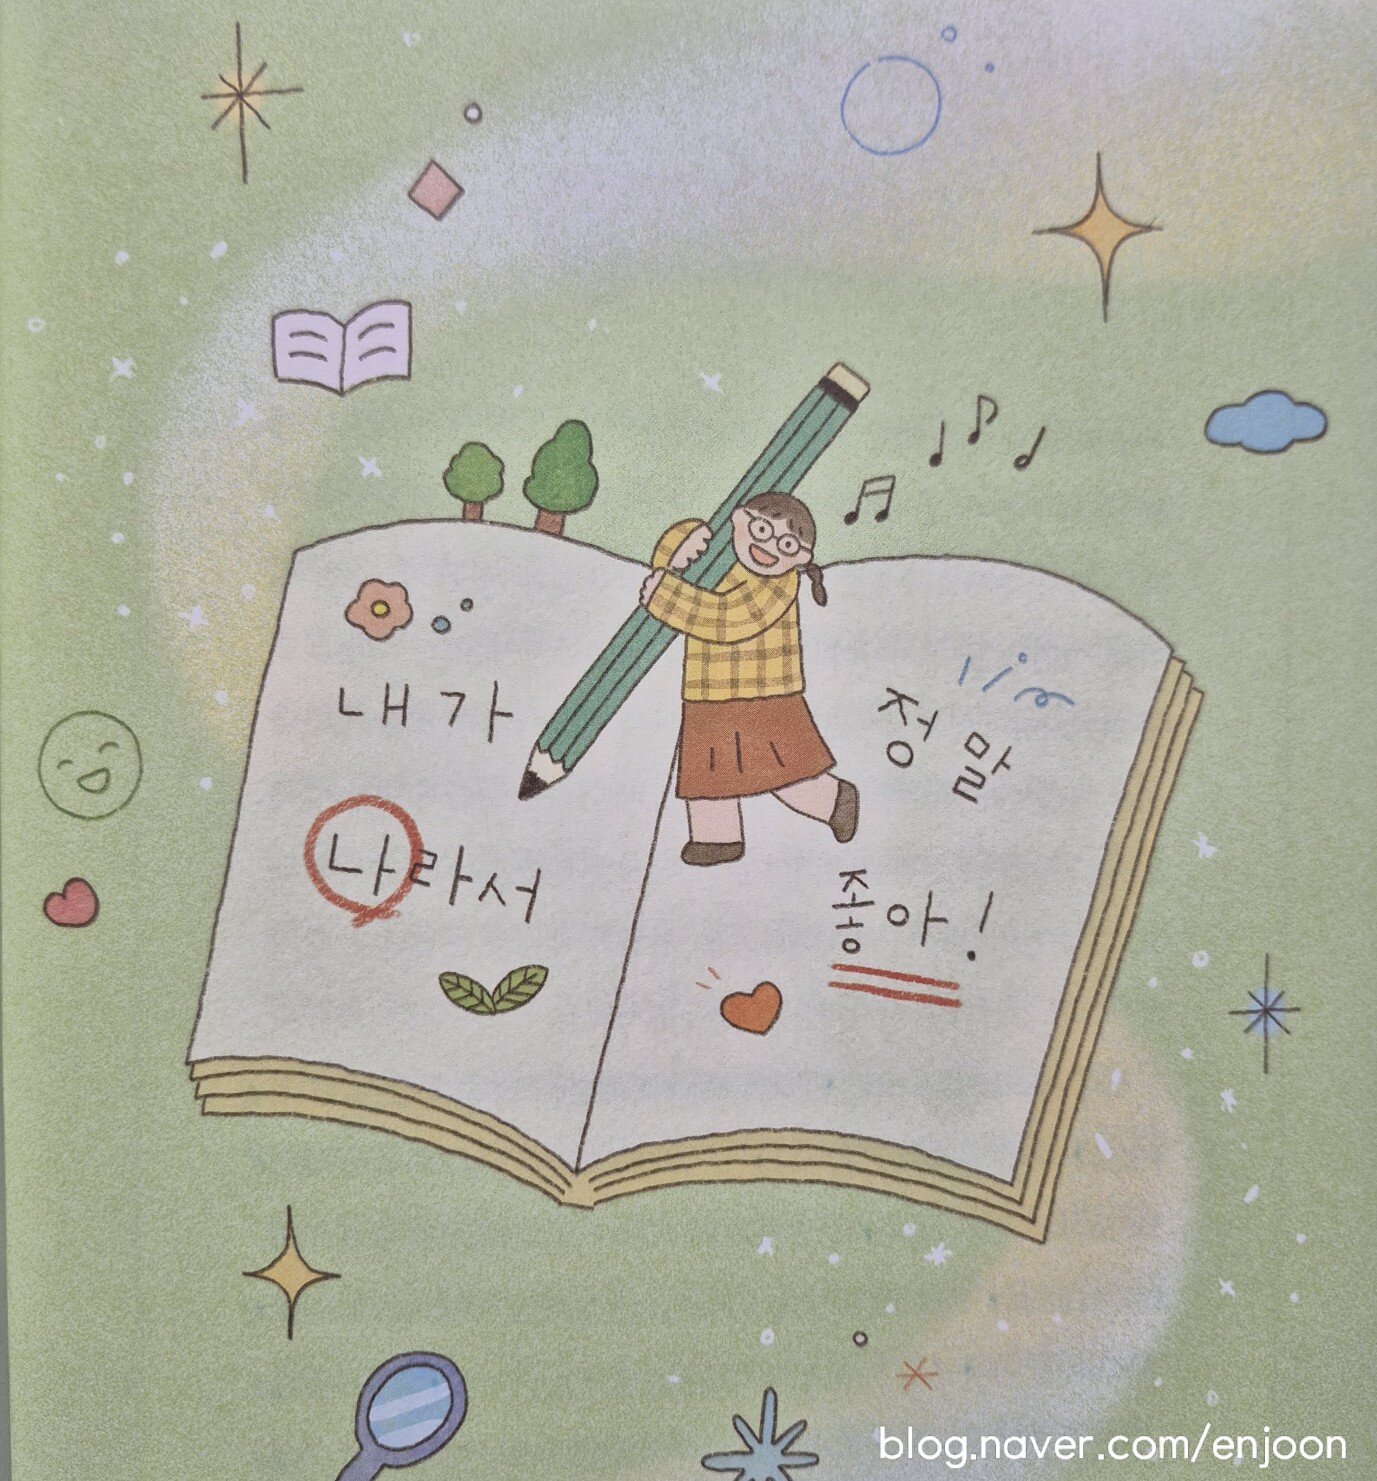 내가
나라서
정말
좋아!
blog.naver.com/enjoon